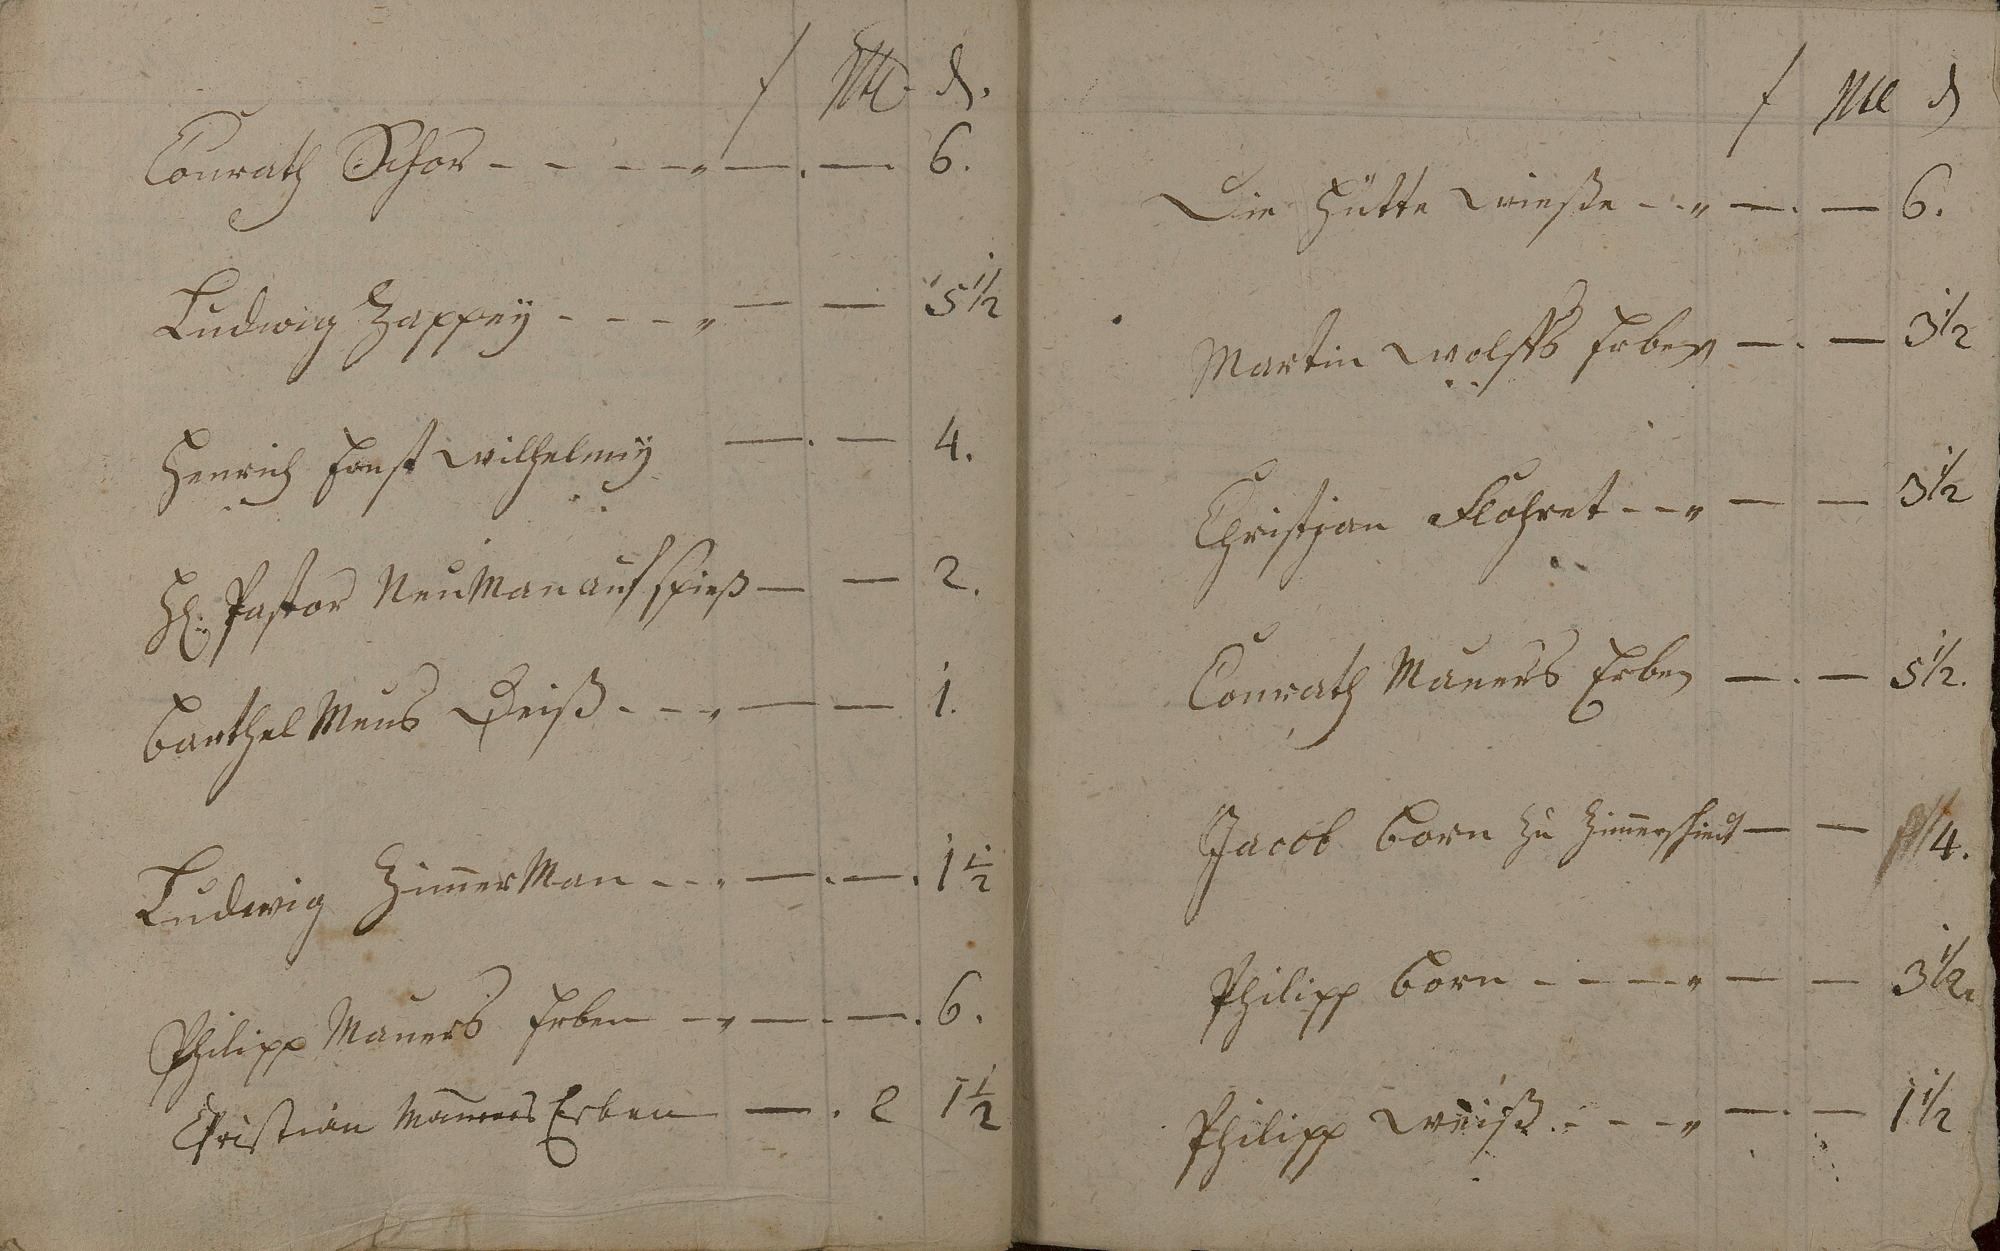 f Mc d.
Conrath Schor - - - - „ — . — 6.
Ludwig Zappey - - - - „ — — 5 1/2
Henrich Ernst Wilhelmy — . — 4.
H. Pastor NeuMan auf Spieß — — 2.
BarthelMeus Weiß - - - „ — — 1.
Ludwig ZimmerMan - - - „ — . — . 1 1/2
Philipp Maurers Erben - - „ — . — . 6.
Christian Maurers Erben — . 2 1 1/2
f Mc d
Die Hütte Wieße - - „ — . — 6.
Martin Wolffs Erben — . — 3 1/2
Christian Flohret - - „ — — 3 1/2
Conrath Maurers Erben — . — 5 1/2.
Jacob Born zu Zimmerschiedt — — /4.
Philipp Born - - - - „ — — 3 1/2.
Philipp Weiß. - - - „ — . — 1 1/2